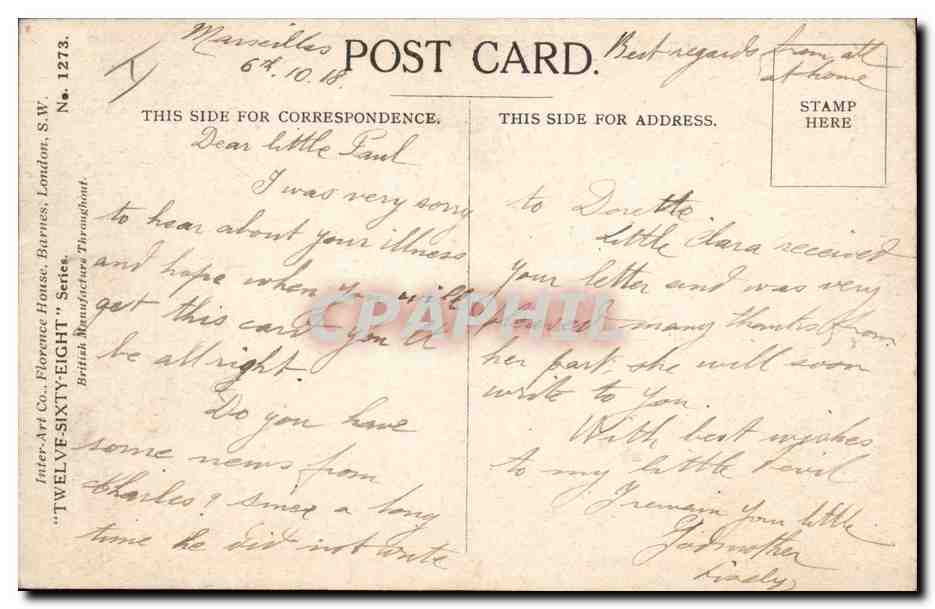 Marseilles
6th. 10. 18.
POST CARD.
Best regards from all
at home
THIS SIDE FOR CORRESPONDENCE.
THIS SIDE FOR ADDRESS.
STAMP
HERE
Inter-Art Co., Florence House, Barnes, London, S.W.
"TWELVE-SIXTY-EIGHT" Series.
No. 1273.
British Manufacture Throughout.
Dear little Paul
I was very sorry
to hear about your illness
and hope when you will
get this card you'll
be all right.
Do you have
some news from
Charles? since a long
time he did not write
to Dorette.
Little Clara received
your letter and was very
pleased many thanks from
her part, she will soon
write to you.
With best wishes
to my little devil
I remain your little
Godmother
CPARAMA